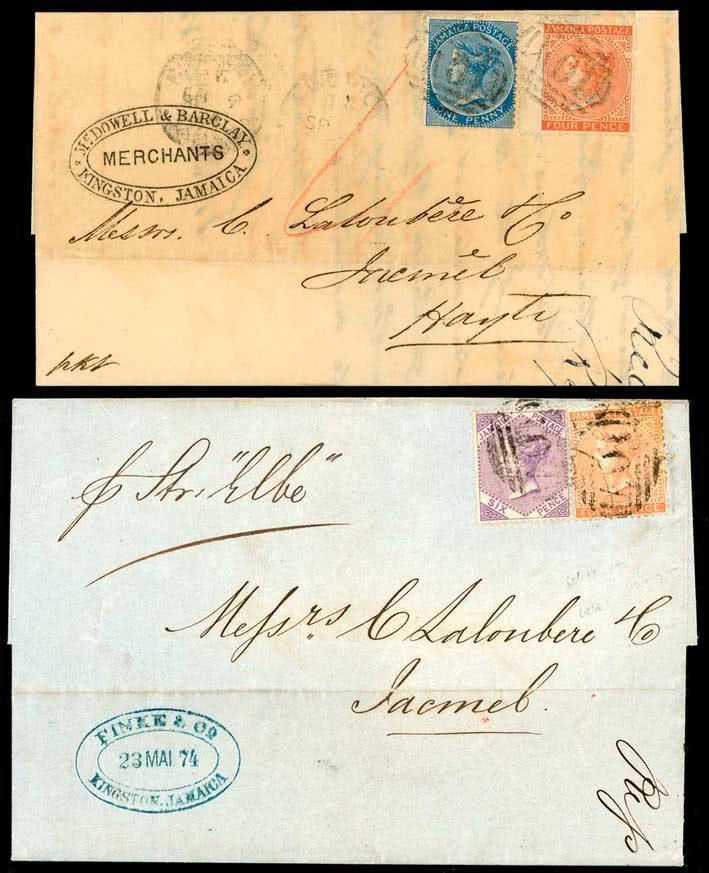 JAMAICA POSTAGE
ONE PENNY
JAMAICA POSTAGE
FOUR PENCE
McDOWELL & BARCLAY
MERCHANTS
KINGSTON, JAMAICA
Messrs. C. Laloubère & Co
Jacmel
Hayti
pkt
JAMAICA POSTAGE
SIX PENCE
JAMAICA POSTAGE
PENCE
A01
p Str. "Elbe"
Messrs C Laloubere & Co
Jacmel.
FINKE & CO
23 MAI 74
KINGSTON, JAMAICA